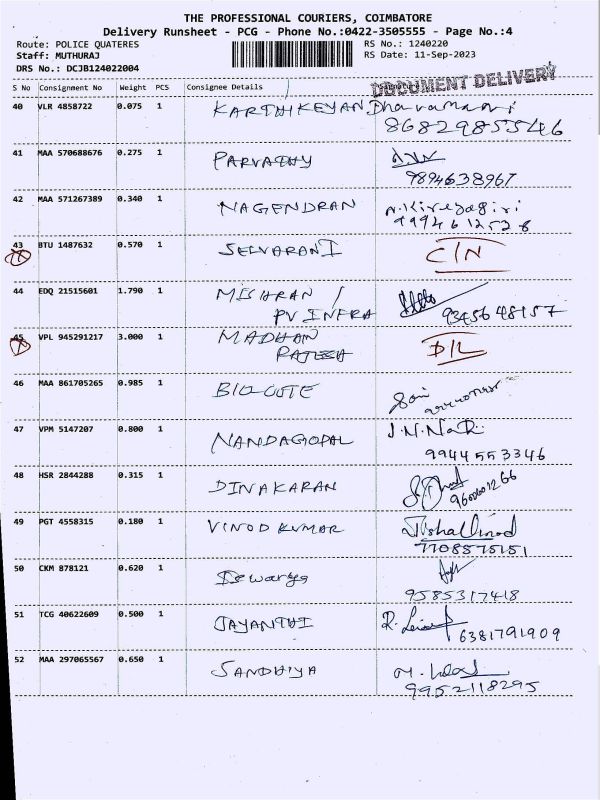 THE PROFESSIONAL COURIERS, COIMBATORE
Delivery Runsheet - PCG - Phone No.:0422-3505555 - Page No.:4
Route: POLICE QUATERES RS No.: 1240220
Staff: MUTHURAJ RS Date: 11-Sep-2023
DRS No.: DCJB124022004
DOCUMENT DELIVERY
S No Consignment No Weight PCS Consignee Details
40 VLR 4858722 0.075 1 KARTHIKEYAN Dhavamani
8682985546
41 MAA 570688676 0.275 1 PARVATHY
9894638967
42 MAA 571267389 0.340 1 NAGENDRAN
9994612528
43 BTU 1487632 0.570 1 SELVARANI C/N
44 EDQ 21515601 1.790 1 MISHRAN /
PV INFRA 9345648157
45 VPL 945291217 3.000 1 MADHAN D/L
RAJESH
46 MAA 861705265 0.985 1
47 VPM 5147207 0.800 1 NANDAGOPAL J.N.
9944553346
48 HSR 2844288 0.315 1 DINAKARAN
9600601266
49 PGT 4558315 0.180 1 VINOD KUMAR
7708575151
50 CKM 878121 0.620 1
9585317418
51 TCG 40622609 0.500 1 JAYANTHI R.
6381791909
52 MAA 297065567 0.650 1 SANDHIYA M.
9952118295